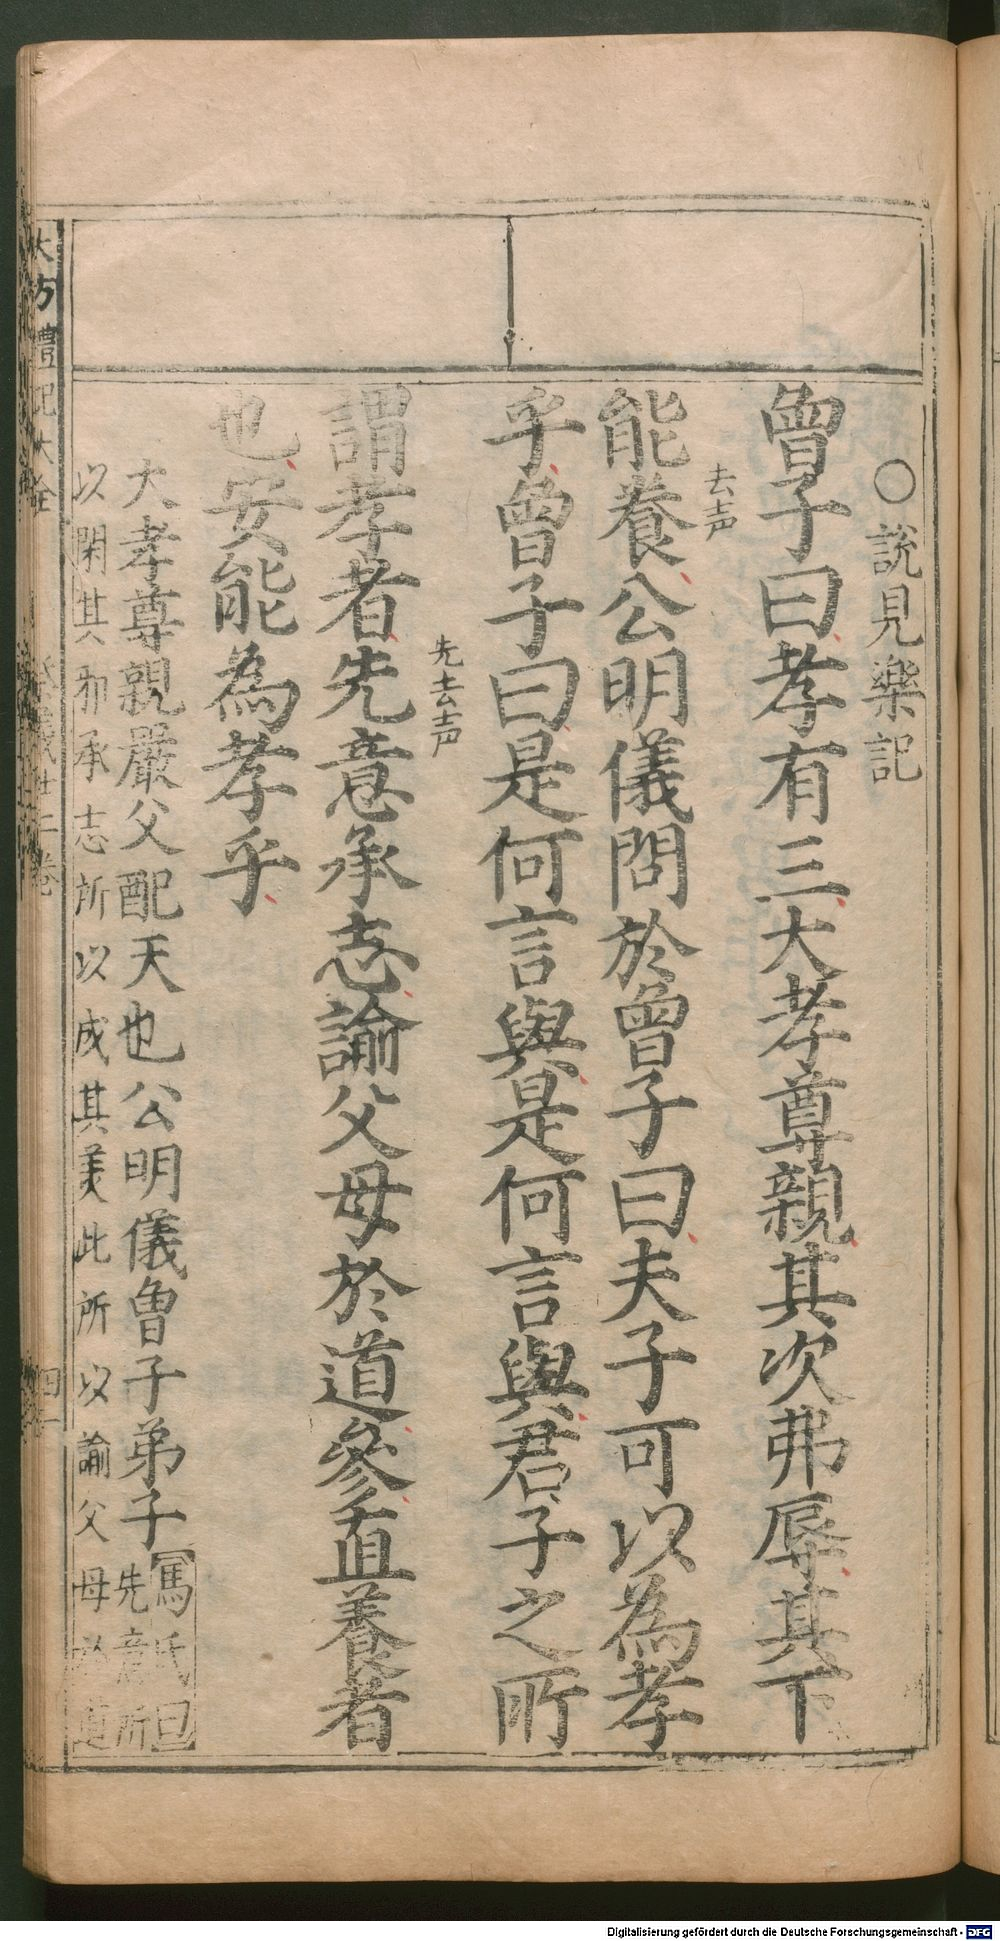 ○說見樂記
曾子曰孝有三大孝尊親其次弗辱其下
能養公明儀問於曾子曰夫子可以為孝
去声
乎曾子曰是何言與是何言與君子之所
謂孝者先意承志諭父母於道參直養者
先去声
也安能為孝乎
大孝尊親嚴父配天也公明儀曾子弟子馮氏曰先意所
以閑其邪承志所以成其美此所以諭父母於道
大方禮記大全
祭義廿二卷
Digitalisierung gefördert durch die Deutsche Forschungsgemeinschaft - DFG